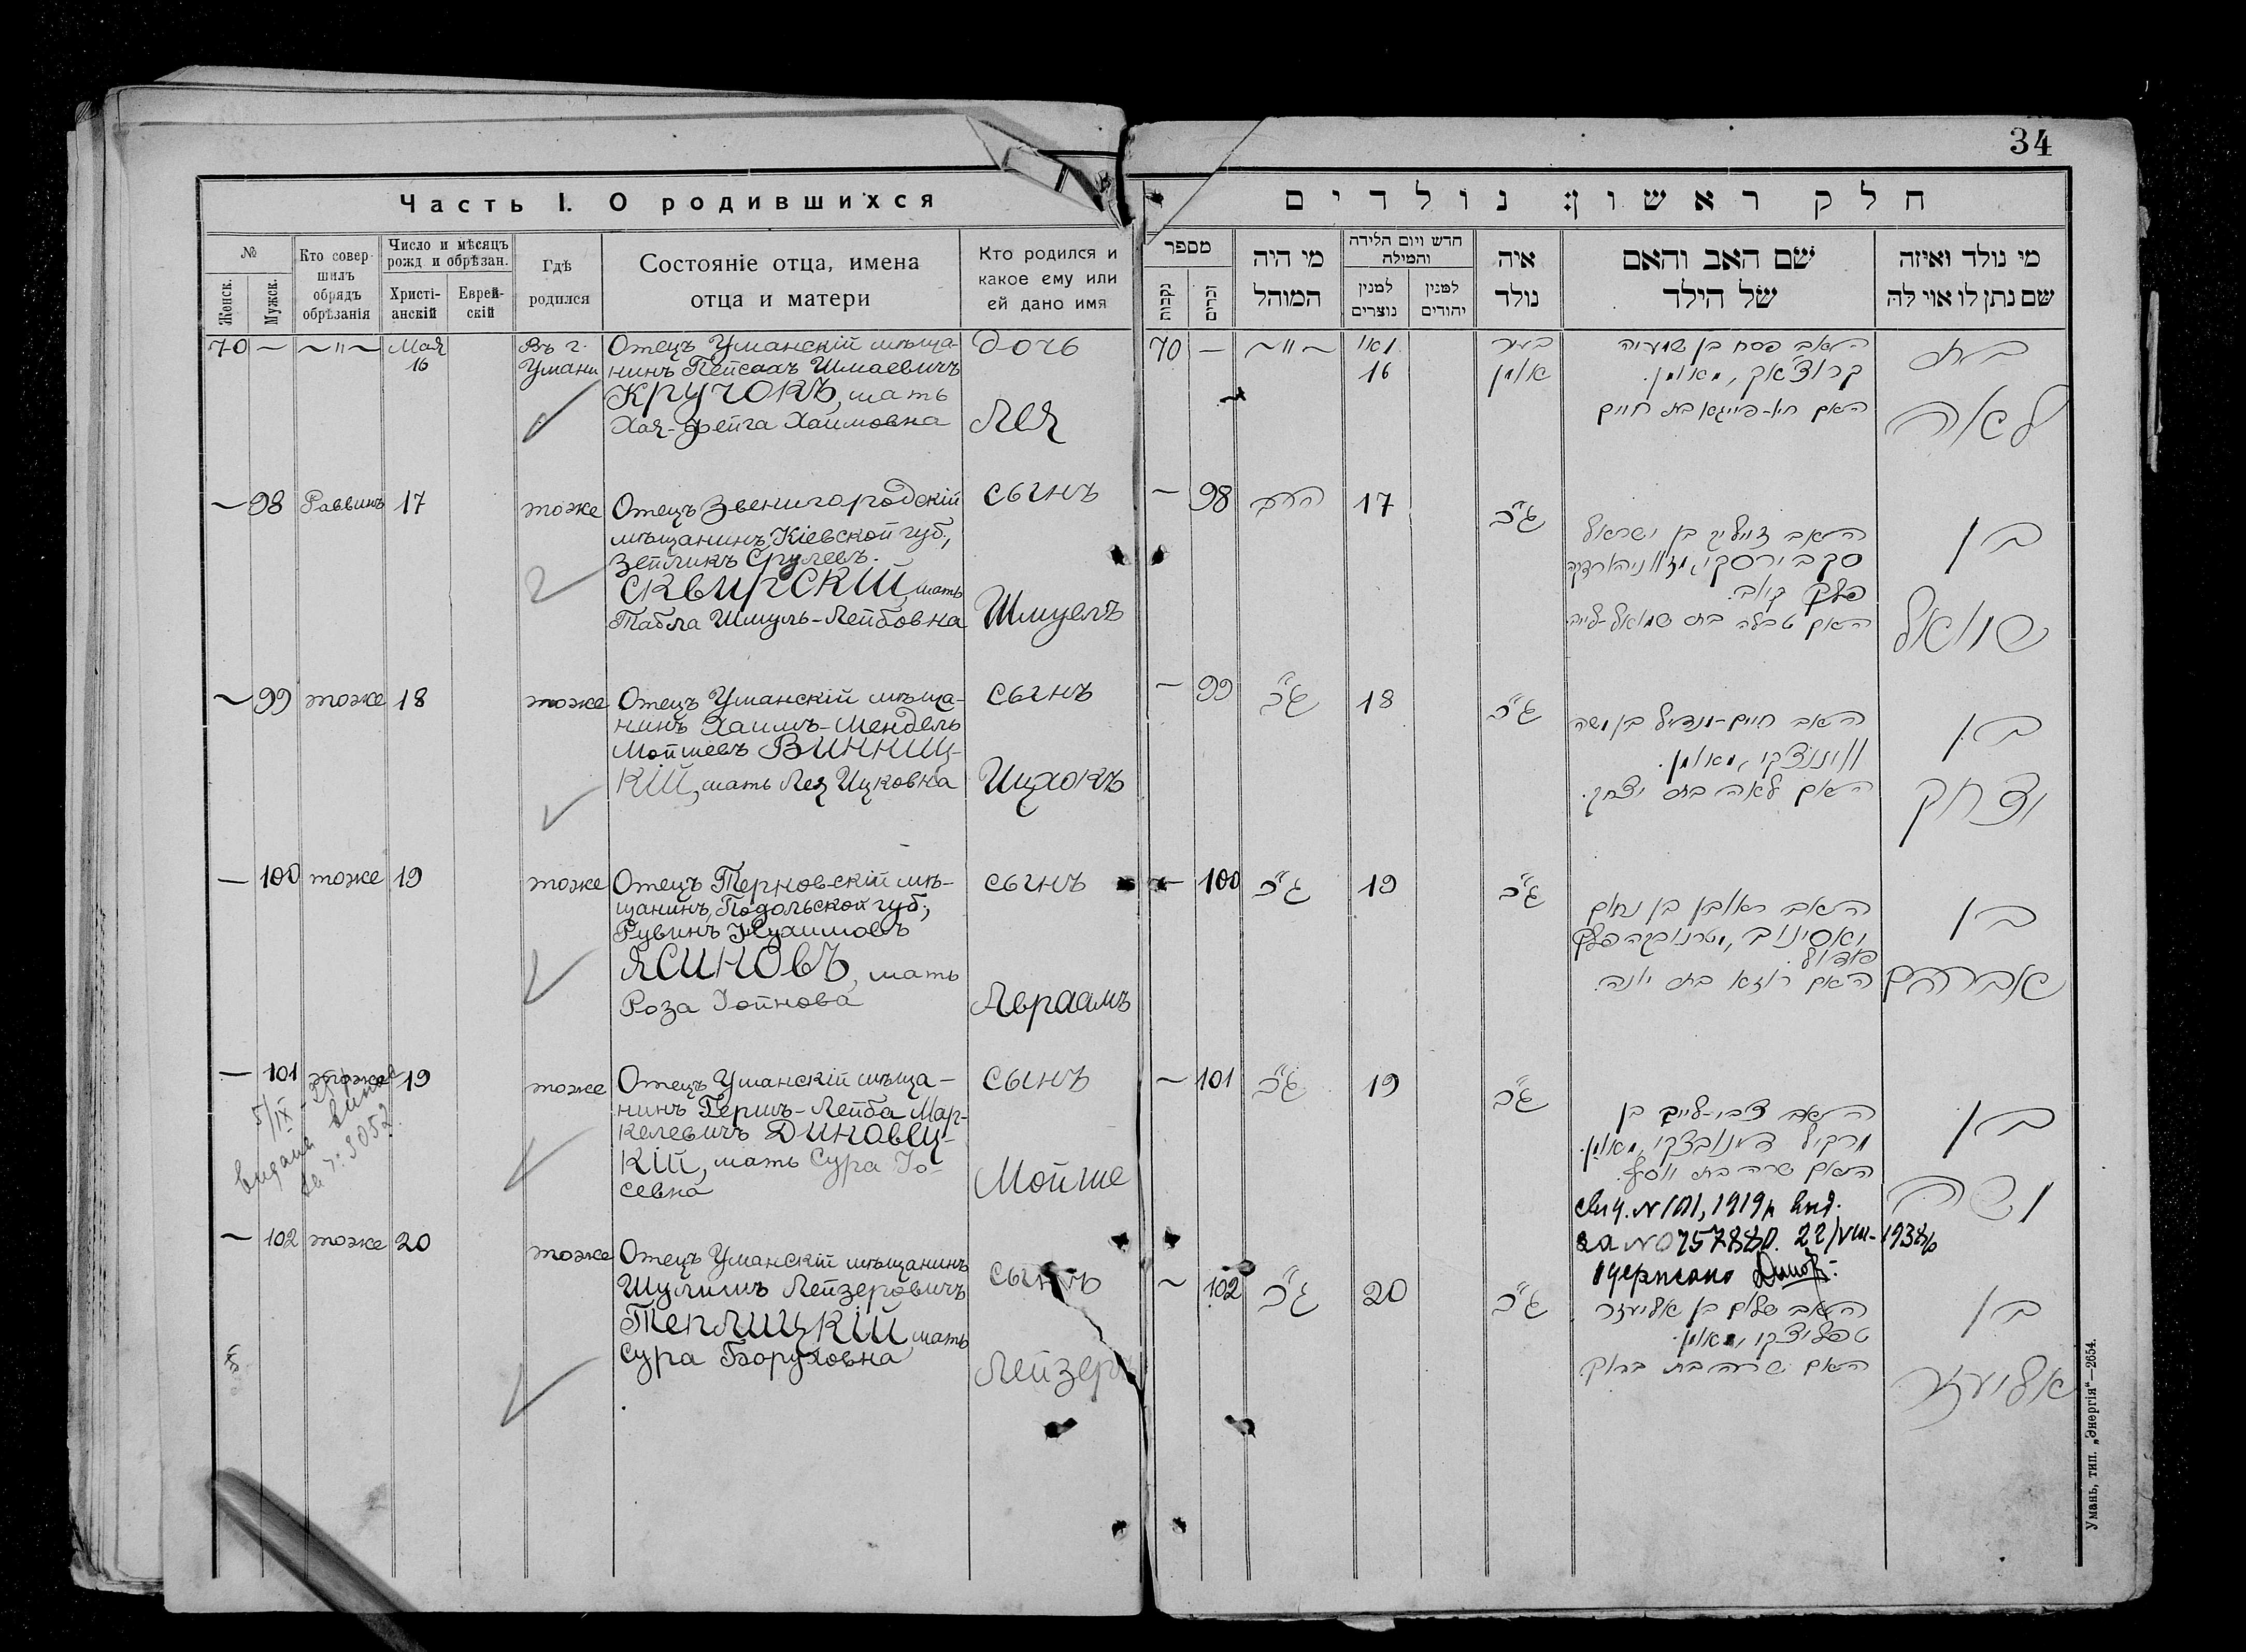 34
Часть I. О родившихся
№
Женск.
Мужск.
Кто совер-
шилъ
обрядъ
обрѣзанія
Число и мѣсяцъ
рожд и обрѣзан.
Христі-
анскій
Еврей-
скій
Гдѣ
родился
Состояніе отца, имена
отца и матери
Кто родился и
какое ему или
ей дано имя
70 — ~"~ Мая
16
Въ г.
Умани
Отецъ Уманскій мѣща-
нинъ Пейсахъ Шмаевичъ
Кручокъ, мать
Хая-Фейга Хаимовна
дочь
Лея
~ 98 Раввинъ 17 тоже
Отецъ Звенигородскій
мѣщанинъ, Кіевской губ.,
Зейликъ Срулевъ.
Сквирскій, мать
Табла Шмуль-Лейбовна
сынъ
Шмуелъ
~ 99 тоже 18 тоже
Отецъ Уманскій мѣща-
нинъ Хаимъ-Мендель
Мойшевъ Винниц-
кій, мать Лея Ицковна
сынъ
Ицхокъ
— 100 тоже 19 тоже
Отецъ Терновскій мѣ-
щанинъ, Подольской губ.,
Рувинъ
Ясиновъ, мать
Роза Іойнова
сынъ
Авраамъ
— 101 тоже 19 тоже
Отецъ Уманскій мѣща-
нинъ Гершъ-Лейба Мар-
келевичъ Диновец-
кій, мать Сура Іо-
севна
сынъ
Мойше
5/IX
~ 102 тоже 20 тоже
Отецъ Уманскій мѣщанинъ
Шулимъ Лейзеровичъ
Теплицкій, мать
Сура Боруховна
сынъ
Лейзеръ
חלק ראשון: נולדים
מספר
נקבות
זכרים
מי היה
המוהל
חדש ויום הלידה
והמילה
למנין
נוצרים
למנין
יהודים
איה
נולד
שם האב והאם
של הילד
מי נולד ואיזה
שם נתן לו אוי לה
70 — ~"~ מאי
16
בעיר
אומן
האב פסח בן שמעיה
קרוצאק, מאומן.
האם חיה-פייגא בת חיים
בת
לאה
~ 98 הרב 17 ג"כ
האב זייליק בן ישראל
סקבירסקי, מזוניהארדקה
פלך קיוב.
האם טבלה בת שמואל-לייב
בן
שמואל
~ 99 ג"כ 18 ג"כ
האב חיים-מנדיל בן משה
וויניצקי, מאומן.
האם לאה בת יצחק.
בן
יצחק
— 100 ג"כ 19 ג"כ
האב ראובן בן נחום
יאסינוב, מטרנובקה פלך
פודול.
האם רוזא בת יונה.
בן
אברהם
~ 101 ג"כ 19 ג"כ
האב צבי-לייב בן
מרקיל דינובצקי, מאומן.
האם שרה בת יוסף.
בן
משה
свід. N 101, 1919 р вид.
за N 0757880. 22/VIII-1938 р
одержано
~ 102 ג"כ 20 ג"כ
האב שלום בן אליעזר
טפליצקי, מאומן.
האם שרה בת ברוך
בן
אליעזר
Умань, тип. „Энергія“—2654.